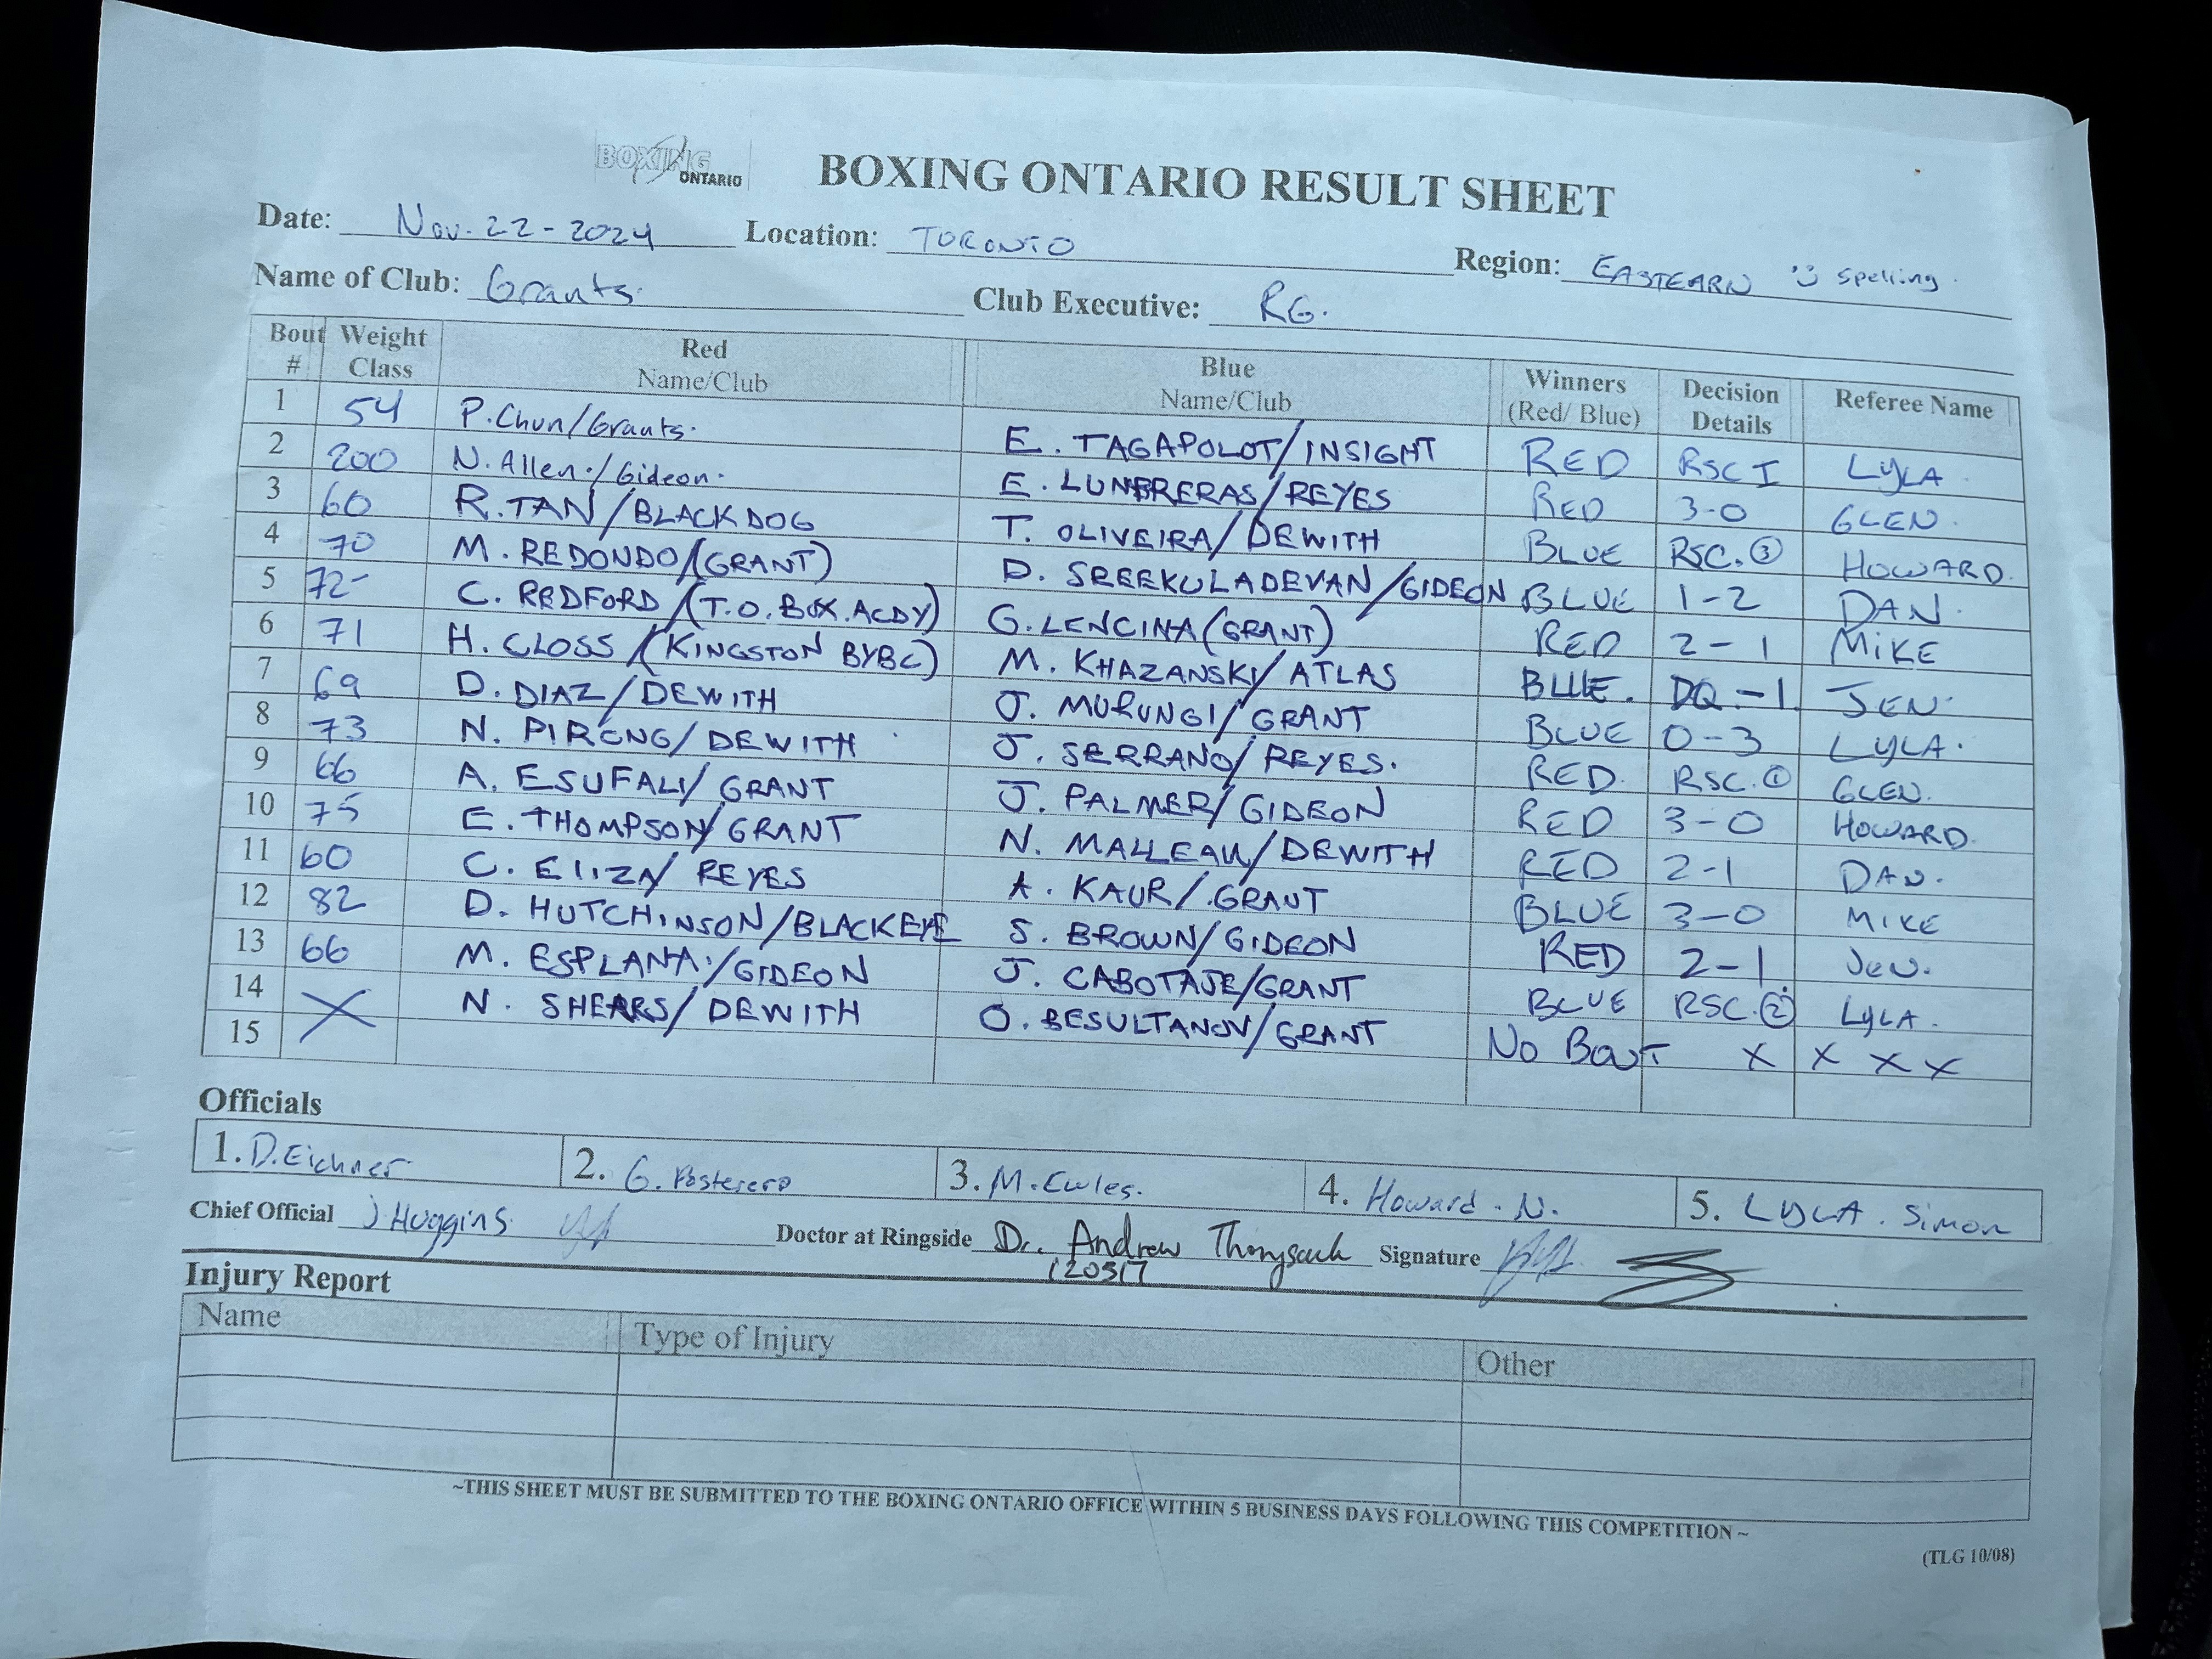 BOXING ONTARIO BOXING ONTARIO RESULT SHEET
Date: Nov. 22 - 2024 Location: TORONTO Region: EASTEARN Spelling.
Name of Club: Grants. Club Executive: RG.
Bout # Weight Class Red Name/Club Blue Name/Club Winners (Red/ Blue) Decision Details Referee Name
1 54 P. Chun/Grants. E. TAGAPOLOT/INSIGHT RED RSC I LYLA
2 200 N. Allen./Gideon. E. LUNBRERAS/REYES RED 3-0 GLEN.
3 60 R. TAN/BLACK DOG T. OLIVEIRA/DEWITH BLUE RSC. ③ HOWARD.
4 70 M. REDONDO/(GRANT) D. SREEKULADEVAN/GIDEON BLUE 1-2 DAN.
5 72- C. REDFORD/(T.O. BOX. ACDY) G. LENCINA (GRANT) RED 2-1 MIKE
6 71 H. CLOSS/(KINGSTON BYBC) M. KHAZANSKI/ATLAS BLUE. DQ.-1. JEN.
7 69 D. DIAZ/DEWITH J. MURUNGI/GRANT BLUE 0-3 LYLA.
8 73 N. PIRONG/DEWITH J. SERRANO/REYES. RED. RSC. ① GLEN.
9 66 A. ESUFALI/GRANT J. PALMER/GIDEON RED 3-0 HOWARD.
10 75 E. THOMPSON/GRANT N. MALLEAU/DEWITH RED 2-1 DAN.
11 60 C. ELIZA/REYES A. KAUR/.GRANT BLUE 3-0 MIKE
12 82 D. HUTCHINSON/BLACKEYE S. BROWN/GIDEON RED 2-1 JEN.
13 66 M. ESPLANA./GIDEON J. CABOTAJE/GRANT BLUE RSC. ② LYLA.
14 X N. SHEARS/DEWITH O. BESULTANOV/GRANT NO BOUT X X X X
15
Officials
1. D. Eichner 2. G. Posterero 3. M. Ewles. 4. Howard. N. 5. LYLA. Simon
Chief Official J Huggins Doctor at Ringside Dr. Andrew Signature
120517
Injury Report
Name Type of Injury Other
~THIS SHEET MUST BE SUBMITTED TO THE BOXING ONTARIO OFFICE WITHIN 5 BUSINESS DAYS FOLLOWING THIS COMPETITION ~
(TLG 10/08)